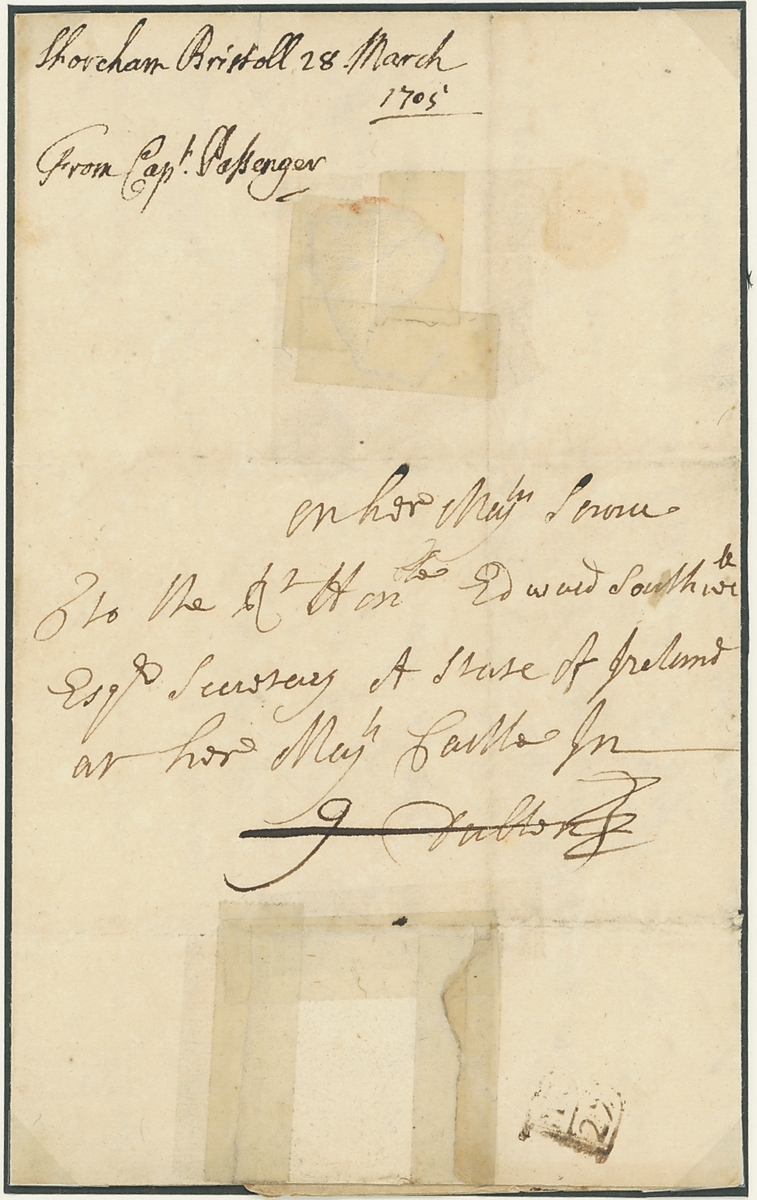 Shoreham Bristoll 28 March
1705
From Capt. Passenger
on her Majts Service
To the Rt Honble Edward Southwell
Esqr Secretary of State of Ireland
at her Majts Castle In
Dublin
27